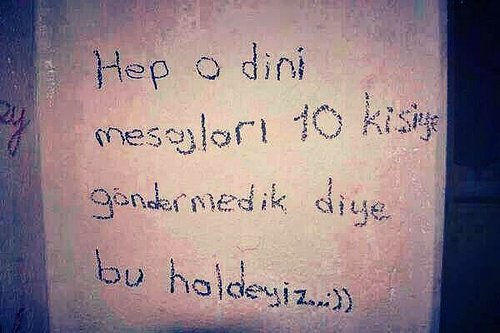 Hep o dini
mesajları 10 kişiye
göndermedik diye
bu haldeyiz...:))